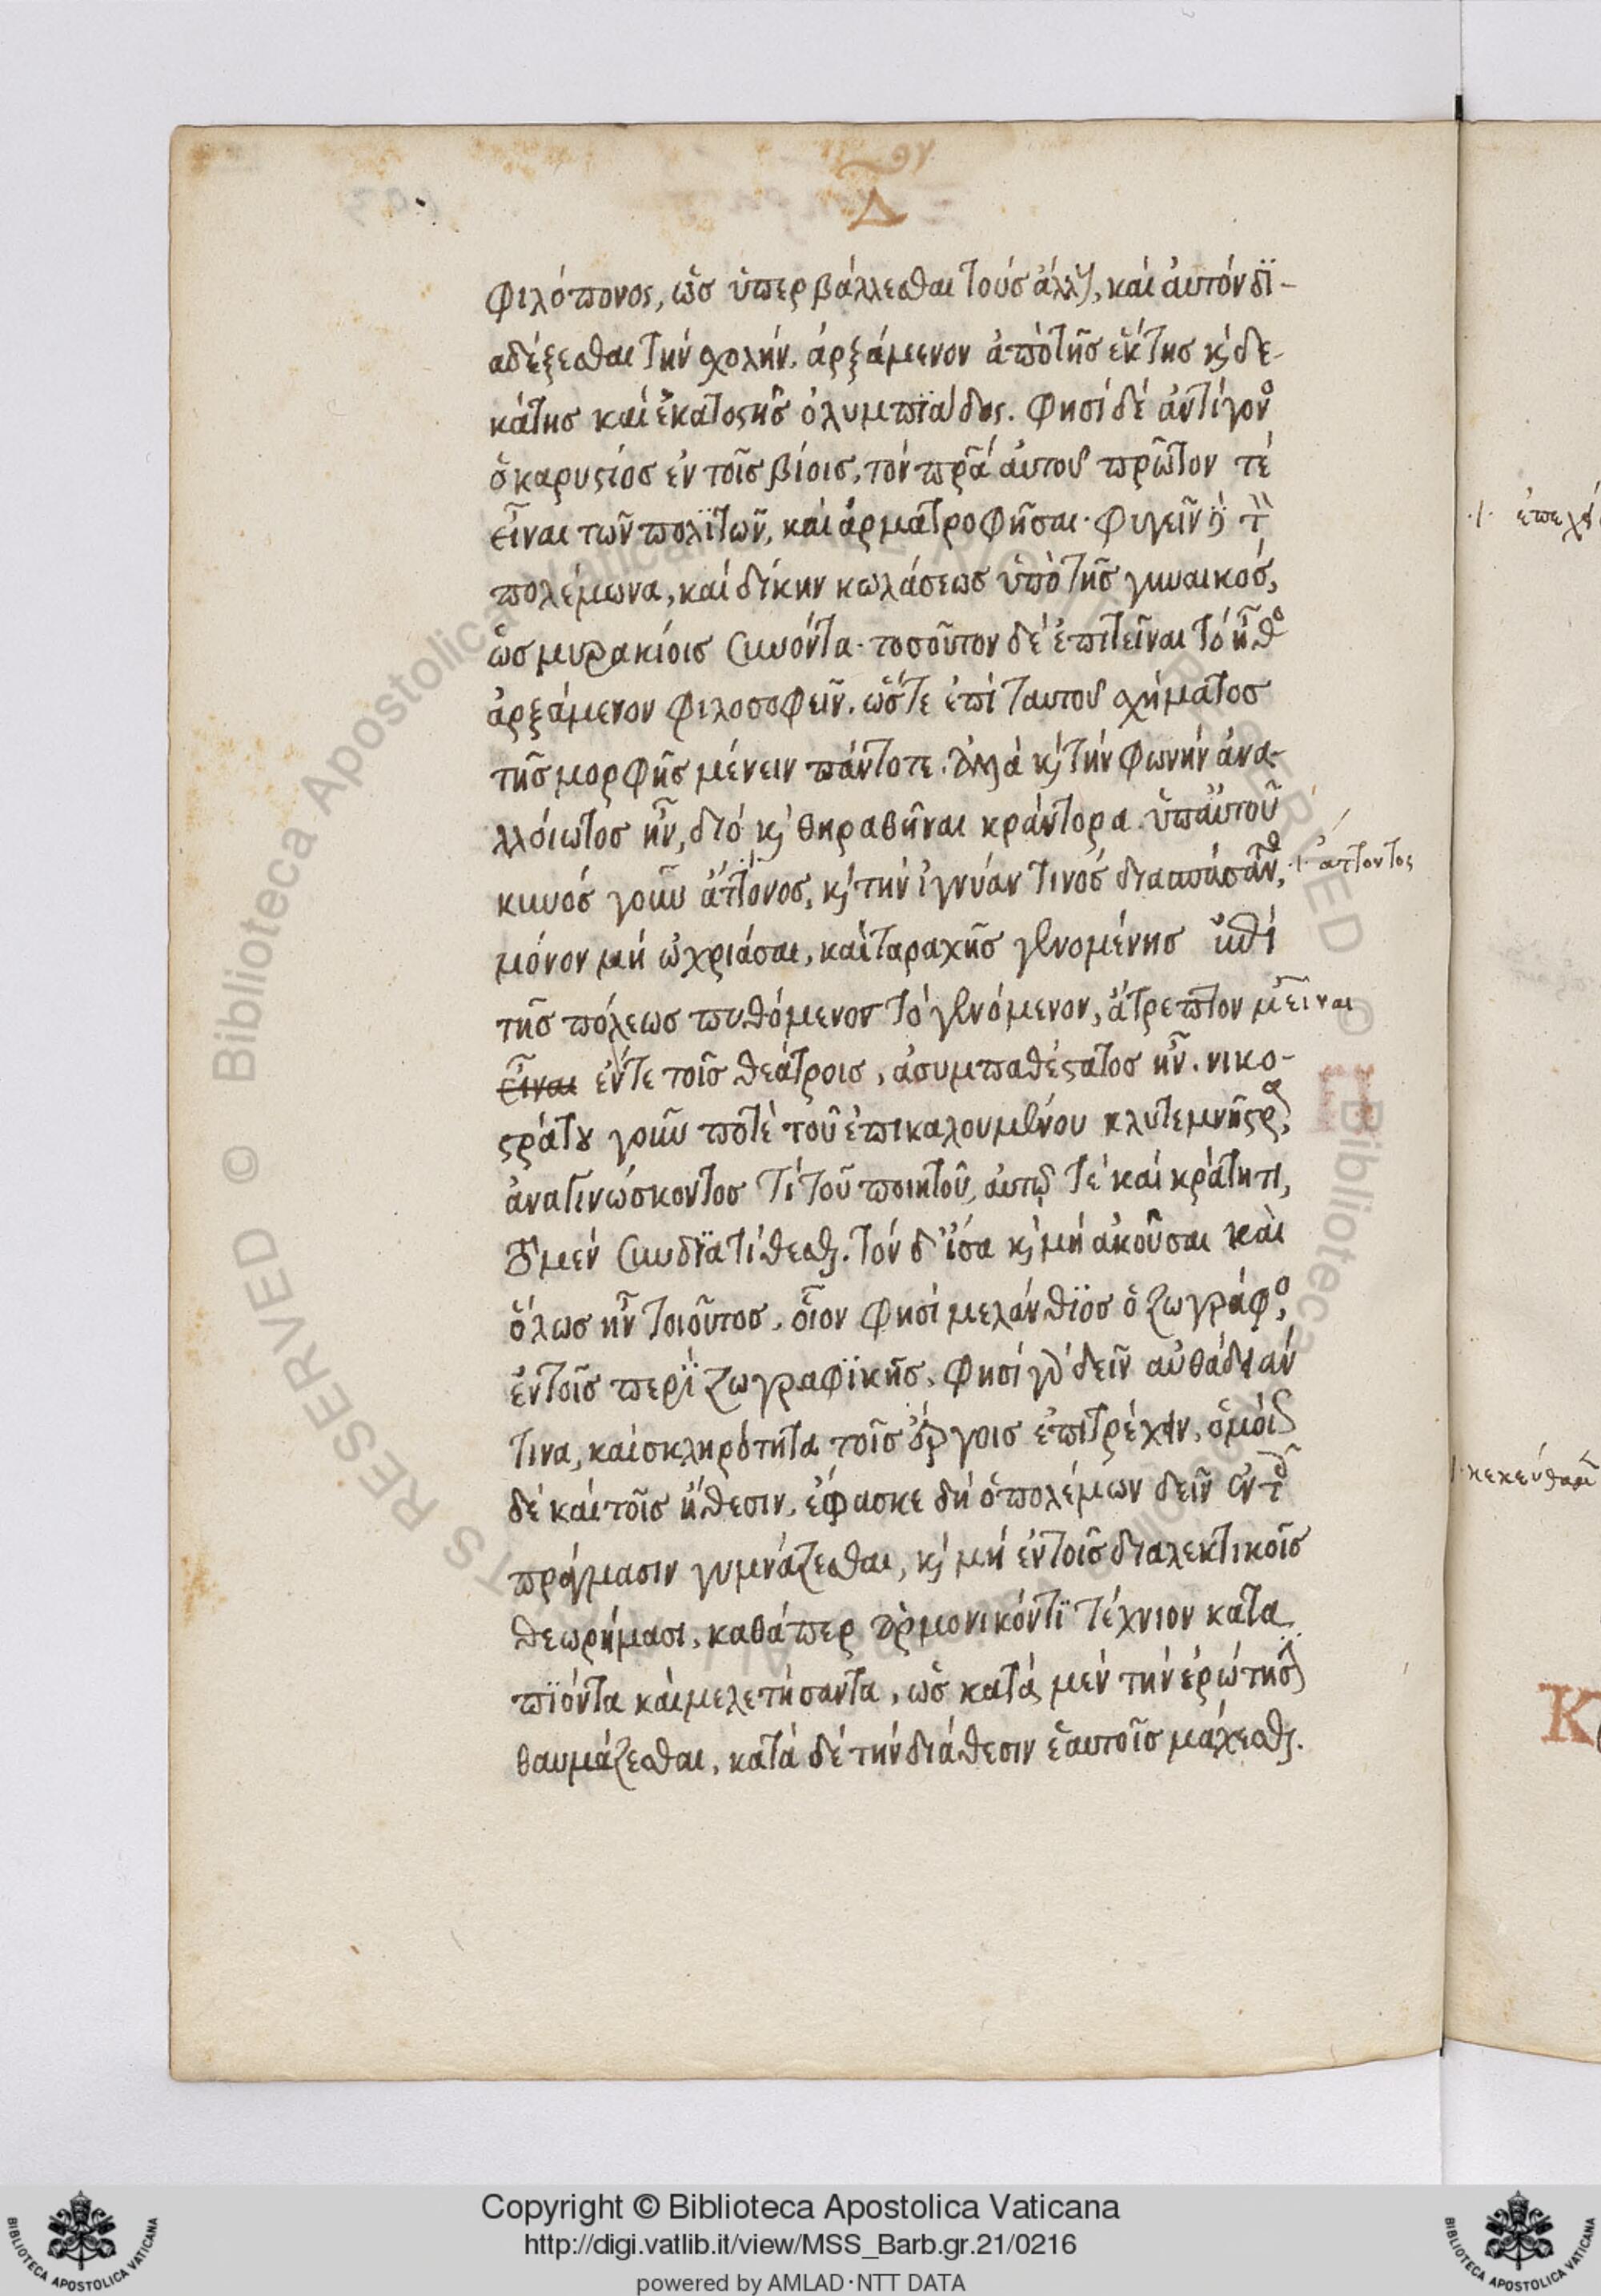 Δ
φιλόπονος, ὡς ὑπερβάλλεσθαι τοὺς ἄλλους, και ἀυτόν δϊ-
αδέξεσθαι τὴν σχολήν. ἀρξάμενον ἀπὸ τῆς ἕκτης κ̀ δε-
κάτης καὶ ἑκατοςῆς ὀλυμπϊάδος. φησί δέ ἀντίγονος
ὁ καρυςίος ἐν τοῖς βίοις, τόν πρ̃α ἀυτοῦ πρῶτον τέ
εἶναι τῶν πολϊτῶν, καὶ ἁρματροφῆσαι. φυγεῖν δὲ τὸν
πολέμωνα, καὶ δίκην κωλάσεως ὑπὸ τῆς γυναικός,
ὡς μυρακίοις συνόντα. τοσοῦτον δέ ἐπιτεῖναι τό ἦθος
ἀρξάμενον φιλοσοφεῖν. ὥστε ἐπί ταυτοῦ σχήματος
τῆς μορφῆς μένειν πάντοτε. ἀλλά κ̀ τήν φωνήν ἀνα-
λλόιωτος ἦν, διό κ̀ θηραθῆναι κράντορα. ὑπ' ἀυτοῦ
κυνός γοῦν ἄττονος, κ̀ τήν ἰγνύαν τινός διασπάσαντος, ·/· ἄττοντος
μόνον μή ὠχριάσαι, καὶ ταραχῆς γενομένης ἐπί
τῆς πόλεως πυθόμενον τό γενόμενον, ἄτρεπτον μεῖναι
εἶναι ἐν τε τοῖς θεάτροις, ἀσυμπαθέςατος ἦν. νικο-
ςράτου γοῦν ποτέ τοῦ ἐπικαλουμένου κλυτεμνήςρας,
ἀναγινώσκοντος τί τοῦ ποιητοῦ, ἀυτῷ τέ καὶ κράτητι,
τὸν μέν συνδϊατίθεσθαι. τόν δ' ἴσα κ̀ μή ἀκοῦσαι καὶ
ὅλως ἦν τοιοῦτος, οἷον φησί μελάνθϊος ὁ ζωγράφος,
ἐν τοῖς περὶ ζωγραφϊκῆς. φησί γὰρ δεῖν αὐθάδειάν
τινα, καὶ σκληρότητα τοῖς ἔργοις ἐπιτρέχειν, ὁμοίως
δέ καὶ τοῖς ἤθεσιν. ἔφασκε δή ὁ πολέμων δεῖν ἐν τοῖς
πράγμασιν γυμνάζεσθαι, κ̀ μή ἐν τοῖς διαλεκτικοῖς
θεωρήμασι, καθάπερ ἁρμονικόν τϊ τέχνιον κατα
πϊόντα καὶ μελετήσαντα, ὡς κατά μέν τήν ἐρώτησιν
θαυμάζεσθαι, κατά δέ τήν διάθεσιν ἑαυτοῖς μάχεσθαι.
Copyright © Biblioteca Apostolica Vaticana
http://digi.vatlib.it/view/MSS_Barb.gr.21/0216
powered by AMLAD·NTT DATA